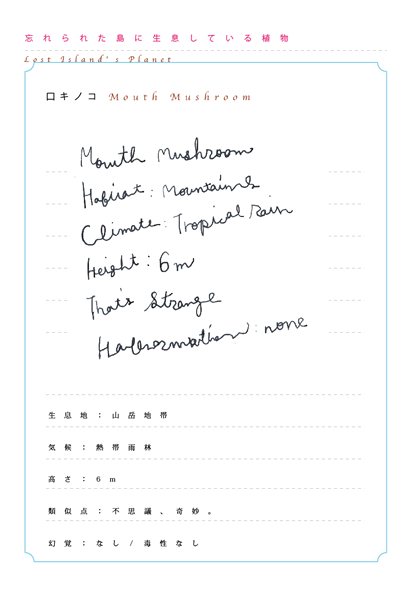 忘れられた島に生息している植物
Lost Island's Planet
口キノコ Mouth Mushroom
Mouth Mushroom
Habitat: Mountains
Climate: Tropical rain
Height: 6m
That's Strange
: none
生息地：山岳地帯
気候：熱帯雨林
高さ：6m
類似点：不思議、奇妙。
幻覚：なし/毒性なし